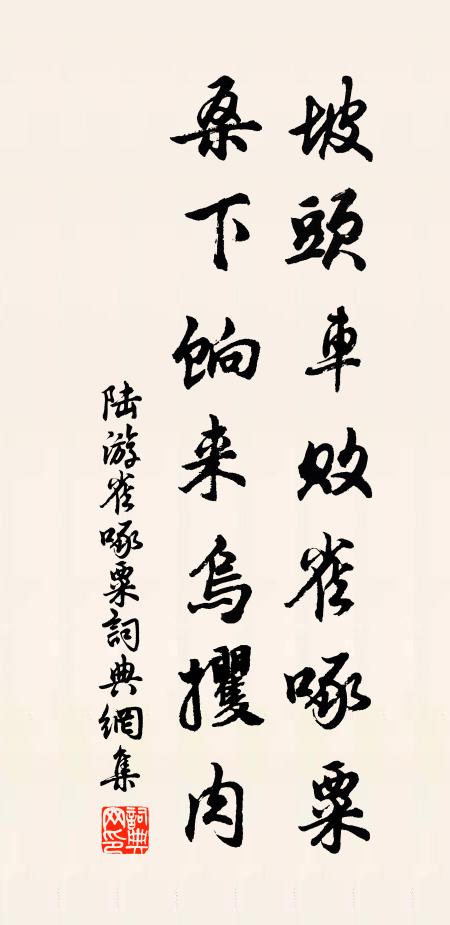 坡頭車敗雀啄粟
桑下餉来烏攫肉
陆游雀啄粟詞典網集
詞典网印